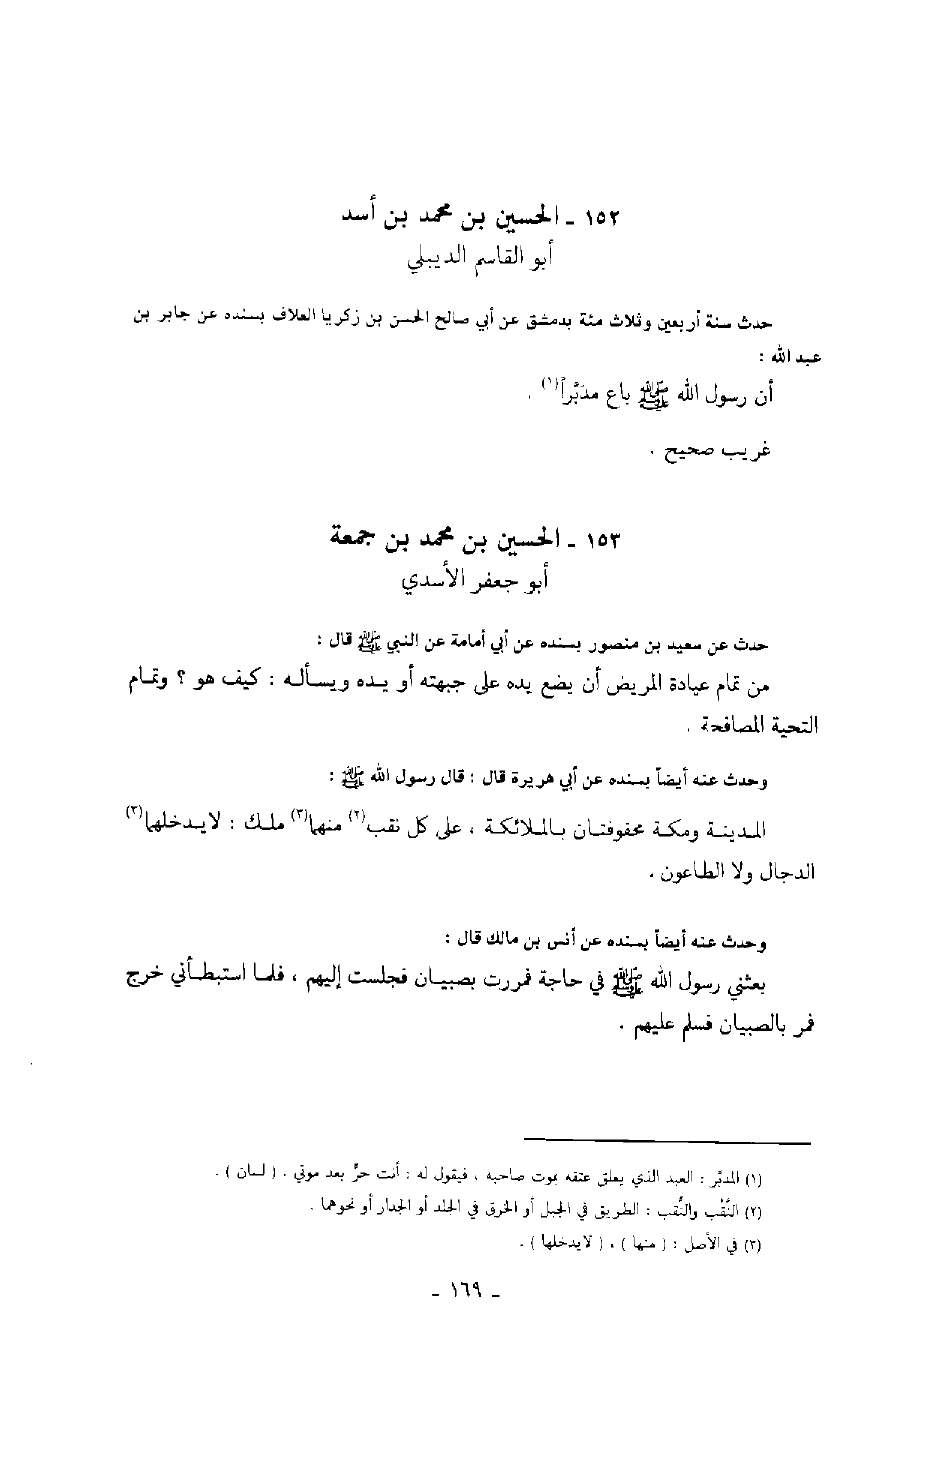 ١٥٢ ـ الحسين بن محمد بن أسد
أبو القاسم الديبلي
حدث سنة أربعين وثلاث مئة بدمشق عن أبي صالح الحسن بن زكريا العلاف بسنده عن جابر بن
عبد الله :
أن رسول الله ﷺ باع مدَبَّراً(١) .
غريب صحيح .
١٥٣ ـ الحسين بن محمد بن جمعة
أبو جعفر الأسدي
حدث عن سعيد بن منصور بسنده عن أبي أمامة عن النبي ﷺ قال :
من تمام عيادة المريض أن يضع يده على جبهته أو يده ويسأله : كيف هو ؟ وتمام
التحية المصافحة .
وحدث عنه أيضاً بسنده عن أبي هريرة قال : قال رسول الله ﷺ :
المدينة ومكة محفوفتان بالملائكة ، على كل نقب(٢) منها(٣) ملك : لا يدخلها(٣)
الدجال ولا الطاعون .
وحدث عنه أيضاً بسنده عن أنس بن مالك قال :
بعثني رسول الله ﷺ في حاجة فمررت بصبيان فجلست إليهم ، فلما استبطأني خرج
فمر بالصبيان فسلم عليهم .
(١) المدبَّر : العبد الذي يعلق عتقه بموت صاحبه ، فيقول له : أنت حرٌّ بعد موتي . ( لسان ) .
(٢) النَّقْب والنُّقب : الطريق في الجبل أو الخرق في الجلد أو الجدار أو نحوهما .
(٣) في الأصل : ( منها ) ، ( لا يدخلها ) .
ـ ١٦٩ ـ